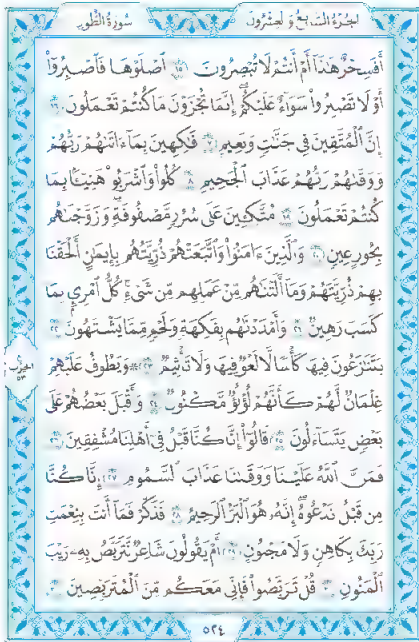 سُورَةُ الطُّورِ
الجُزْءُ السَّابِعُ وَالعِشْرُونَ
أَفَسِحْرٌ هَٰذَا أَمْ أَنتُمْ لَا تُبْصِرُونَ ١٥ ٱصْلَوْهَا فَٱصْبِرُوٓا۟
أَوْ لَا تَصْبِرُوا۟ سَوَآءٌ عَلَيْكُمْ إِنَّمَا تُجْزَوْنَ مَا كُنتُمْ تَعْمَلُونَ ١٦
إِنَّ ٱلْمُتَّقِينَ فِى جَنَّٰتٍ وَنَعِيمٍ ١٧ فَٰكِهِينَ بِمَآ ءَاتَىٰهُمْ رَبُّهُمْ
وَوَقَىٰهُمْ رَبُّهُمْ عَذَابَ ٱلْجَحِيمِ ١٨ كُلُوا۟ وَٱشْرَبُوا۟ هَنِيٓـًٔۢا بِمَا
كُنتُمْ تَعْمَلُونَ ١٩ مُتَّكِـِٔينَ عَلَىٰ سُرُرٍ مَّصْفُوفَةٍ وَزَوَّجْنَٰهُم
بِحُورٍ عِينٍ ٢٠ وَٱلَّذِينَ ءَامَنُوا۟ وَٱتَّبَعَتْهُمْ ذُرِّيَّتُهُم بِإِيمَٰنٍ أَلْحَقْنَا
بِهِمْ ذُرِّيَّتَهُمْ وَمَآ أَلَتْنَٰهُم مِّنْ عَمَلِهِم مِّن شَىْءٍ كُلُّ ٱمْرِئٍۭ بِمَا
كَسَبَ رَهِينٌ ٢١ وَأَمْدَدْنَٰهُم بِفَٰكِهَةٍ وَلَحْمٍ مِّمَّا يَشْتَهُونَ ٢٢
يَتَنَٰزَعُونَ فِيهَا كَأْسًا لَّا لَغْوٌ فِيهَا وَلَا تَأْثِيمٌ ٢٣ وَيَطُوفُ عَلَيْهِمْ
غِلْمَانٌ لَّهُمْ كَأَنَّهُمْ لُؤْلُؤٌ مَّكْنُونٌ ٢٤ وَأَقْبَلَ بَعْضُهُمْ عَلَىٰ
بَعْضٍ يَتَسَآءَلُونَ ٢٥ قَالُوٓا۟ إِنَّا كُنَّا قَبْلُ فِىٓ أَهْلِنَا مُشْفِقِينَ ٢٦
فَمَنَّ ٱللَّهُ عَلَيْنَا وَوَقَىٰنَا عَذَابَ ٱلسَّمُومِ ٢٧ إِنَّا كُنَّا
مِن قَبْلُ نَدْعُوهُ إِنَّهُۥ هُوَ ٱلْبَرُّ ٱلرَّحِيمُ ٢٨ فَذَكِّرْ فَمَآ أَنتَ بِنِعْمَتِ
رَبِّكَ بِكَاهِنٍ وَلَا مَجْنُونٍ ٢٩ أَمْ يَقُولُونَ شَاعِرٌ نَّتَرَبَّصُ بِهِۦ رَيْبَ
ٱلْمَنُونِ ٣٠ قُلْ تَرَبَّصُوا۟ فَإِنِّى مَعَكُم مِّنَ ٱلْمُتَرَبِّصِينَ ٣١
٥٢٤